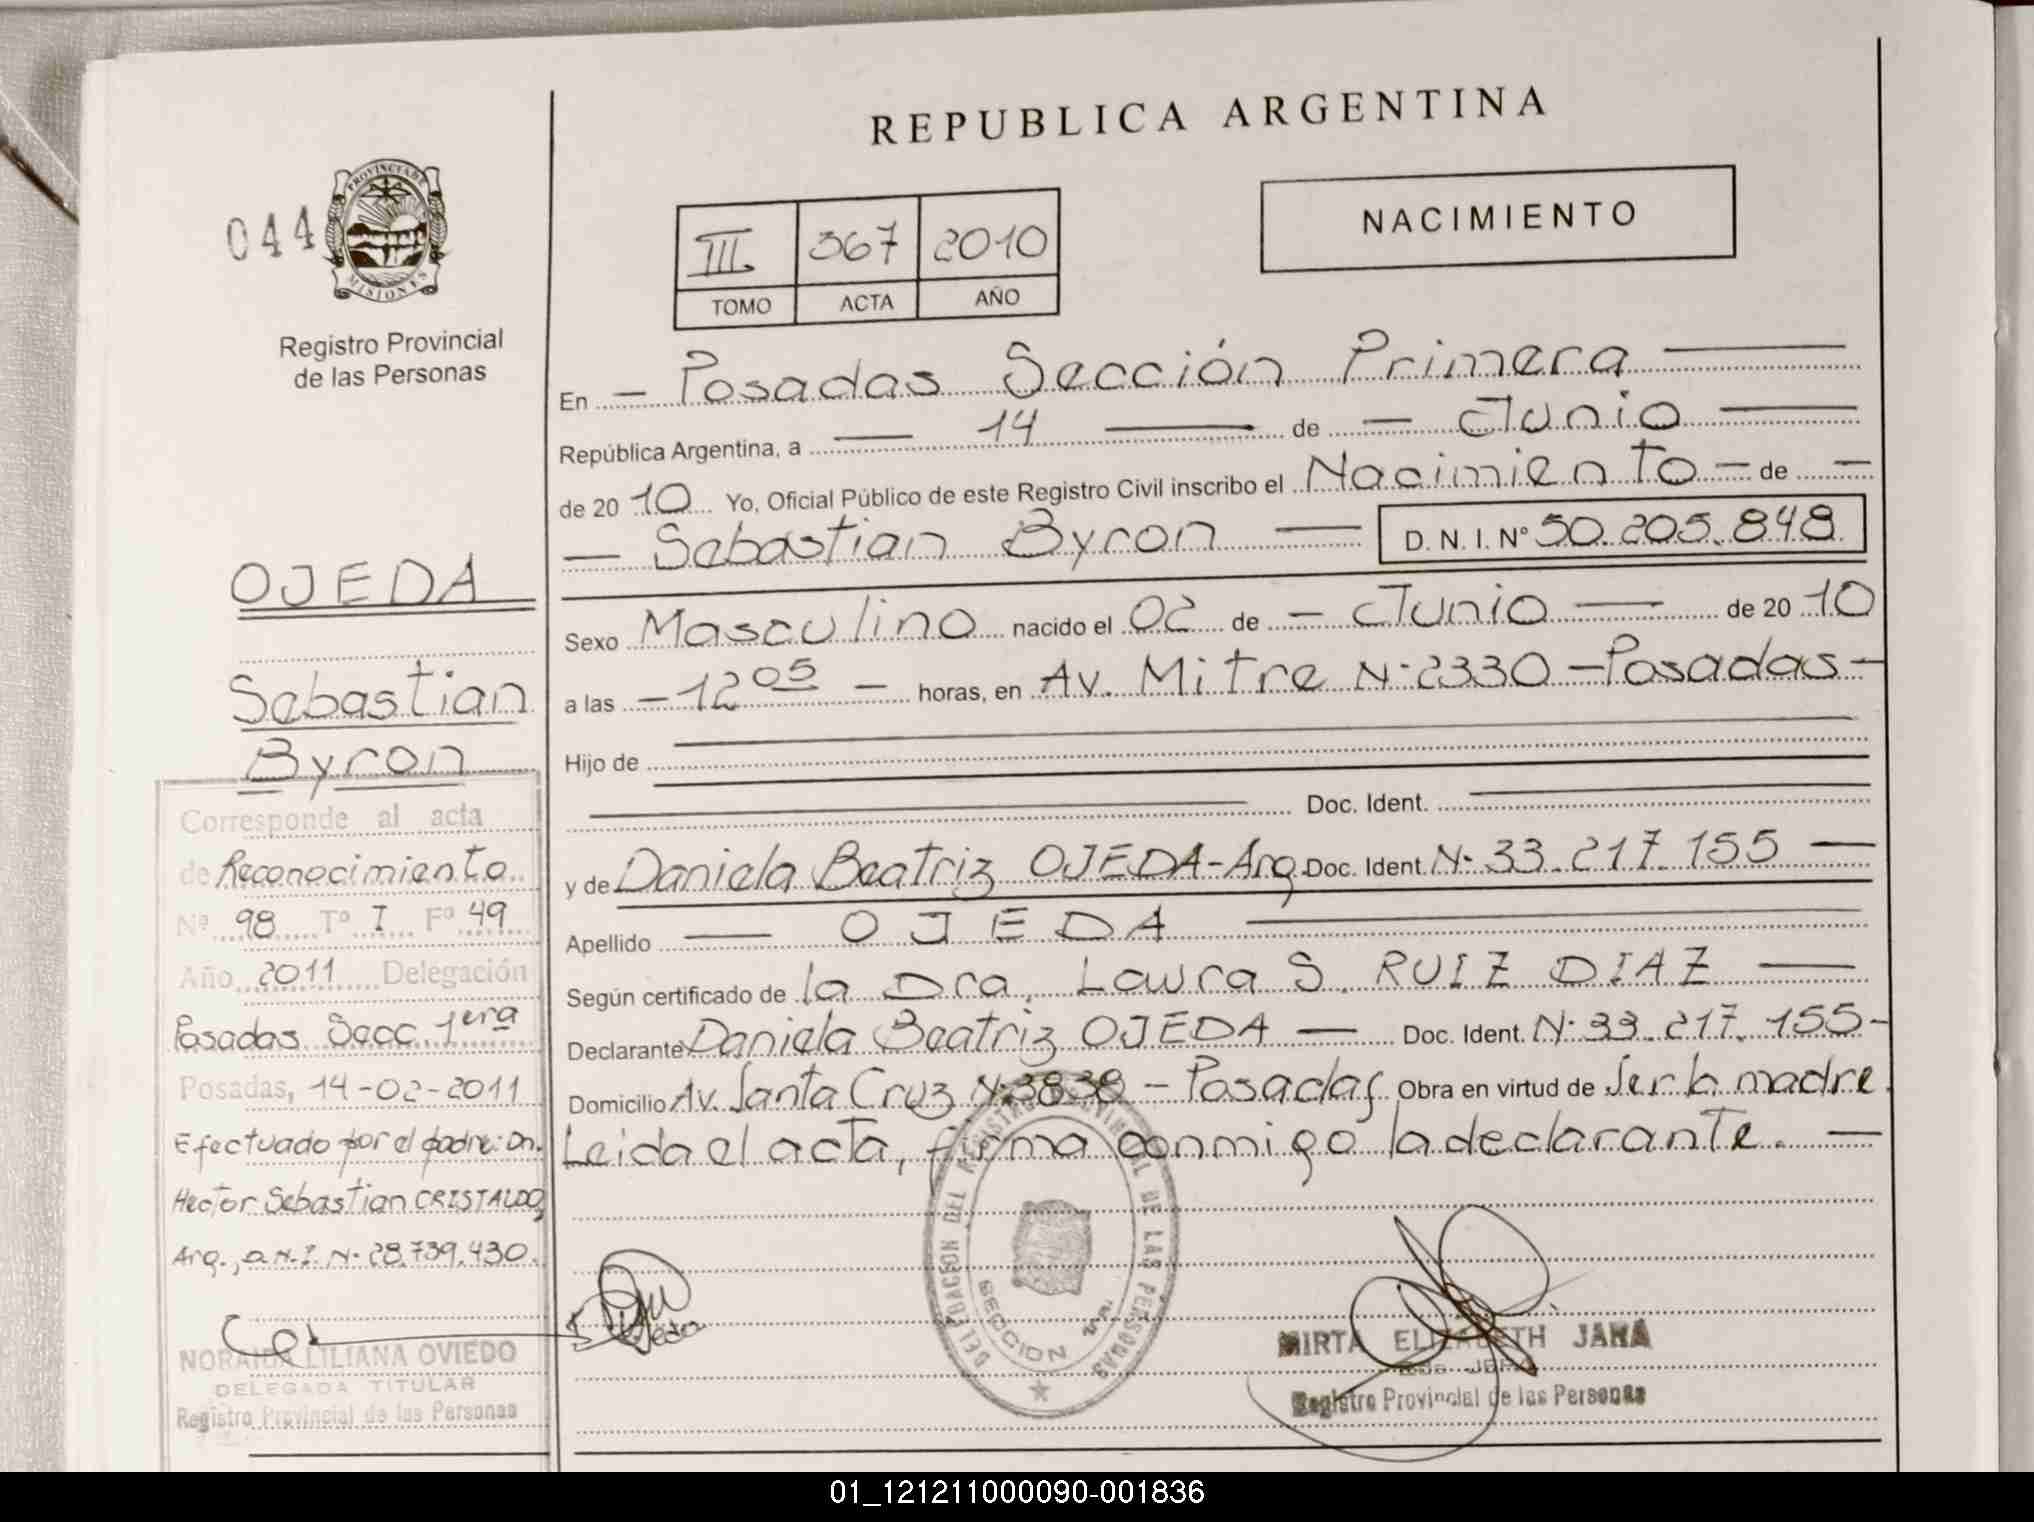 REPUBLICA ARGENTINA
NACIMIENTO
III 367 2010
TOMO ACTA AÑO
044
PROVINCIA DE MISIONES
Registro Provincial
de las Personas
OJEDA
Sebastian
Byron
Corresponde al acta
de Reconocimiento
Nº 98 Tº I Fº 49
Año 2011 Delegación
Posadas Secc. 1era
Posadas, 14-02-2011
Efectuado por el padre: Dn.
Hector Sebastian CRISTALDO,
Arg., D.N.I. Nº 28.739.430.
NORAIDA LILIANA OVIEDO
DELEGADA TITULAR
Registro Provincial de las Personas
En — Posadas Sección Primera —
República Argentina, a — 14 — de — Junio —
de 2010 Yo, Oficial Público de este Registro Civil inscribo el Nacimiento — de —
— Sebastian Byron — D. N. I. Nº 50.205.848
Sexo Masculino nacido el 02 de — Junio — de 2010
a las — 12 05 — horas, en Av. Mitre Nº 2330 — Posadas —
Hijo de
Doc. Ident.
y de Daniela Beatriz OJEDA - Arg. Doc. Ident. Nº 33.217.155 —
Apellido — OJEDA —
Según certificado de la Dra. Laura S. RUIZ DIAZ —
Declarante Daniela Beatriz OJEDA — Doc. Ident. Nº 33.217.155 -
Domicilio Av. Santa Cruz Nº 3838 - Posadas Obra en virtud de ser la madre.
Leida el acta, firma conmigo la declarante. —
DELEGACION DEL REGISTRO PROVINCIAL DE LAS PERSONAS
SECCION 1ra
MIRTA ELIZABETH JARA
Registro Provincial de las Personas
01_121211000090-001836